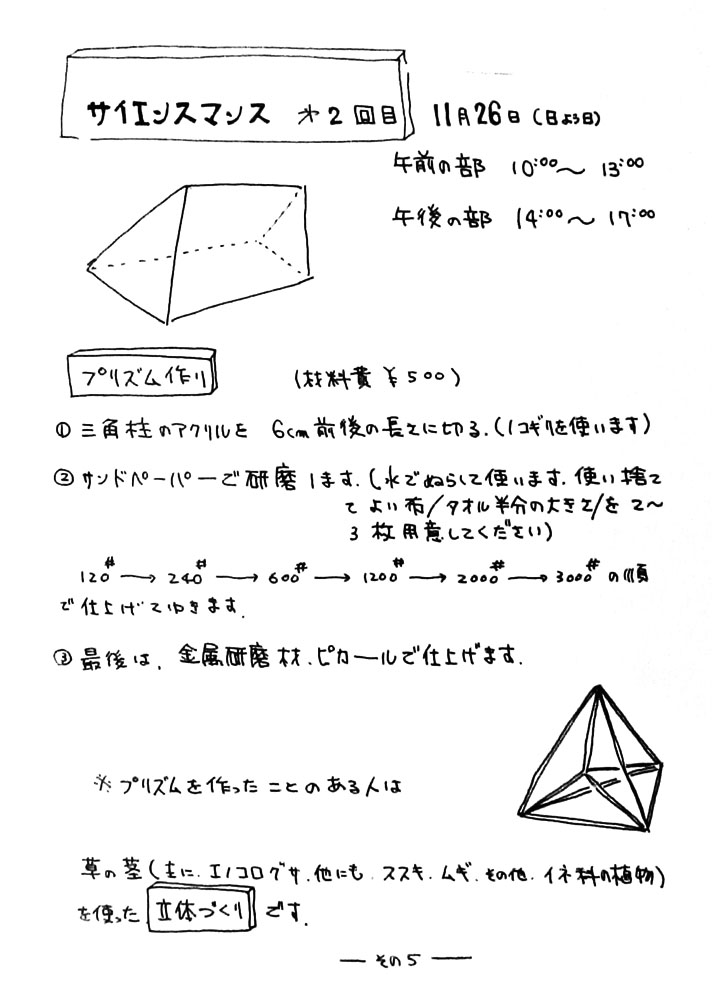 サイエンスマンス 才2回目 11月26日(日よう日)
午前の部 10:00〜 13:00
午後の部 14:00〜 17:00
プリズム作り (材料費 ¥500)
① 三角柱のアクリルを 6cm前後の長さに切る.(ノコギリを使います)
② サンドペーパーで研磨します.(水でぬらして使います.使い捨て
てよい布/タオル半分の大きさ/を2〜
3枚用意してください)
120# → 240# → 600# → 1200# → 2000# → 3000# の順
で仕上げてゆきます.
③ 最後は、金属研磨材、ピカールで仕上げます.
※プリズムを作ったことのある人は
草の茎(主に、エノコログサ、他にも、ススキ、ムギ、その他、イネ科の植物)
を使った 立体づくり です.
— その5 —